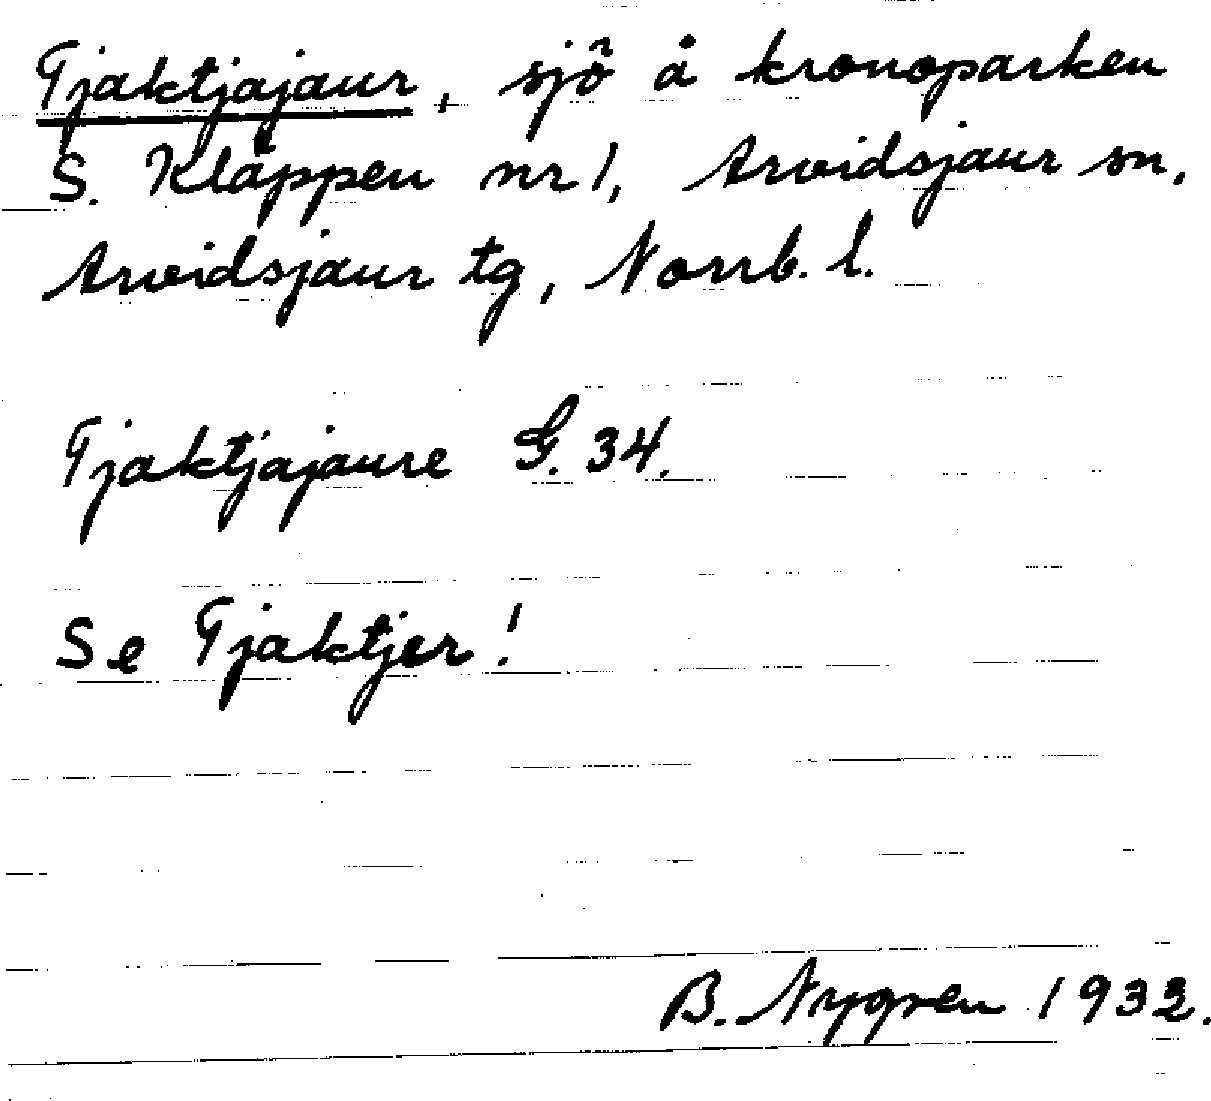 Tjaktjajaur, sjö å kronoparken
S. Kläppen nr 1, Arvidsjaur sn,
Arvidsjaur tg, Norrb. l.
Tjaktjajaure G. 34.
Se Tjaktjer!
B. Nygren 1932.